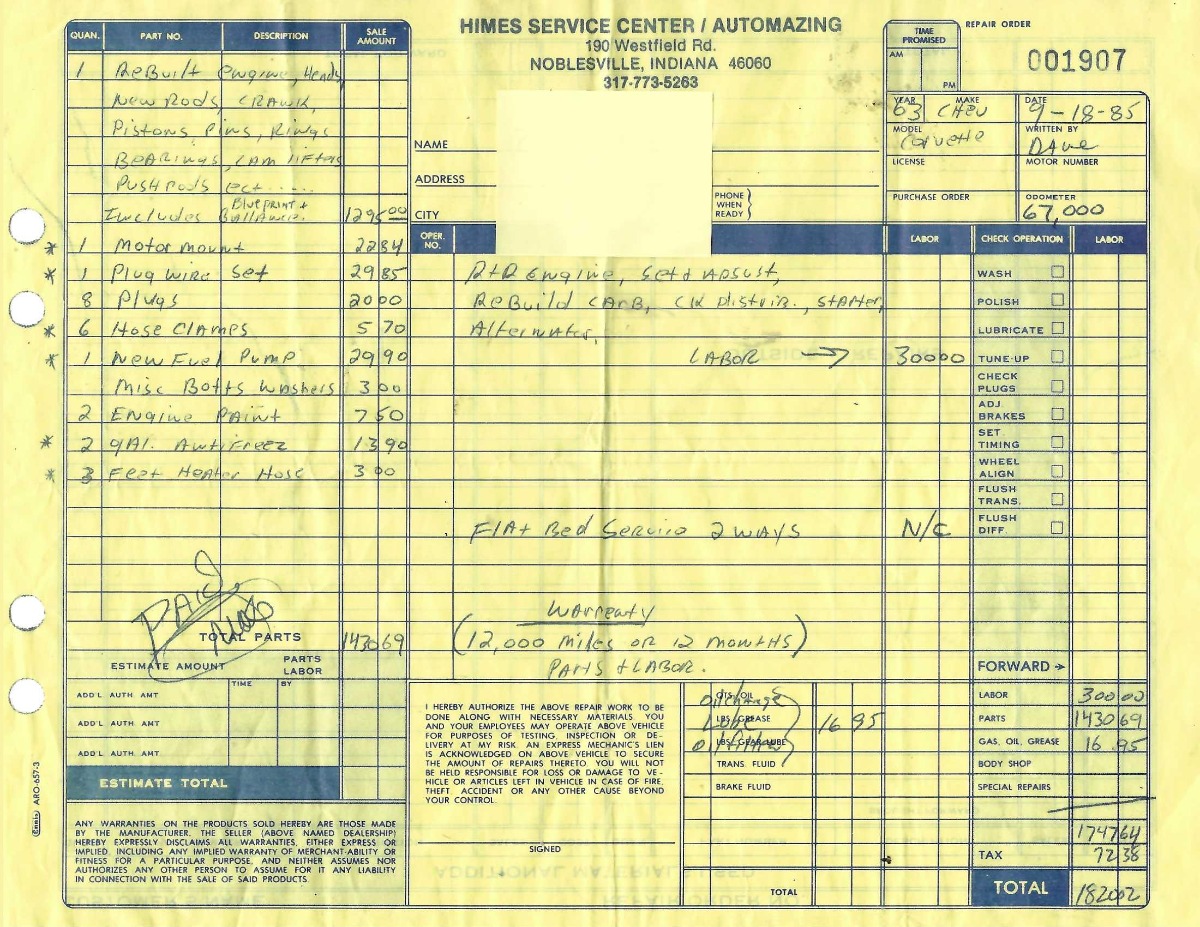 HIMES SERVICE CENTER / AUTOMAZING
190 Westfield Rd.
NOBLESVILLE, INDIANA 46060
317-773-5263
TIME PROMISED
AM
PM
REPAIR ORDER
001907
YEAR 63 MAKE CHEV
DATE 9-18-85
MODEL Corvette
WRITTEN BY DAVE
LICENSE
MOTOR NUMBER
PURCHASE ORDER
ODOMETER 67,000
NAME
ADDRESS
CITY
PHONE WHEN READY
QUAN. PART NO. DESCRIPTION SALE AMOUNT
1 ReBuilt engine, Heads
New Rods, CRANK,
Pistons pins, Rings
BeARings, CAM lifters
PushRods ect.....
Includes Blueprint + Ballance. 1295 00
* 1 Motor mount 22 84
* 1 Plug wire set 29 85
8 Plugs 20 00
* 6 Hose Clamps 5 70
* 1 New Fuel Pump 29 90
Misc Botts Washers 3 00
2 ENgine PAint 7 50
* 2 gAl. Antifreez 13 90
* 3 Feet Heater Hose 3 00
PAID
TOTAL PARTS 1430 69
ESTIMATE AMOUNT PARTS LABOR
TIME BY
ADD'L AUTH. AMT
ADD'L AUTH. AMT
ADD'L AUTH. AMT
ESTIMATE TOTAL
ANY WARRANTIES ON THE PRODUCTS SOLD HEREBY ARE THOSE MADE
BY THE MANUFACTURER. THE SELLER (ABOVE NAMED DEALERSHIP)
HEREBY EXPRESSLY DISCLAIMS ALL WARRANTIES, EITHER EXPRESS OR
IMPLIED, INCLUDING ANY IMPLIED WARRANTY OF MERCHANT-ABILITY OR
FITNESS FOR A PARTICULAR PURPOSE, AND NEITHER ASSUMES NOR
AUTHORIZES ANY OTHER PERSON TO ASSUME FOR IT ANY LIABILITY
IN CONNECTION WITH THE SALE OF SAID PRODUCTS.
Ennis ARO-657-3
OPER. NO. LABOR CHECK OPERATION LABOR
R+R ENgine, Set + ADJust,
ReBuild CARB, CK Distrib., Starter,
Alternator,
LABOR → 300 00
Flat Bed Service 2 WAYS N/C
Warrenty
(12,000 Miles OR 12 MONTHS)
PARTS + LABOR.
WASH
POLISH
LUBRICATE
TUNE-UP
CHECK PLUGS
ADJ. BRAKES
SET. TIMING
WHEEL ALIGN
FLUSH TRANS.
FLUSH DIFF.
FORWARD →
I HEREBY AUTHORIZE THE ABOVE REPAIR WORK TO BE
DONE ALONG WITH NECESSARY MATERIALS. YOU
AND YOUR EMPLOYEES MAY OPERATE ABOVE VEHICLE
FOR PURPOSES OF TESTING, INSPECTION OR DE-
LIVERY AT MY RISK. AN EXPRESS MECHANIC'S LIEN
IS ACKNOWLEDGED ON ABOVE VEHICLE TO SECURE
THE AMOUNT OF REPAIRS THERETO. YOU WILL NOT
BE HELD RESPONSIBLE FOR LOSS OR DAMAGE TO VE-
HICLE OR ARTICLES LEFT IN VEHICLE IN CASE OF FIRE,
THEFT, ACCIDENT OR ANY OTHER CAUSE BEYOND
YOUR CONTROL.
SIGNED
QTS. OIL Oil change
LBS. GREASE Lube 16 95
LBS. GEAR LUBE Oil filter
TRANS. FLUID
BRAKE FLUID
TOTAL
LABOR 300 00
PARTS 1430 69
GAS, OIL, GREASE 16.95
BODY SHOP
SPECIAL REPAIRS
1747 64
TAX 72 38
TOTAL 1820 02